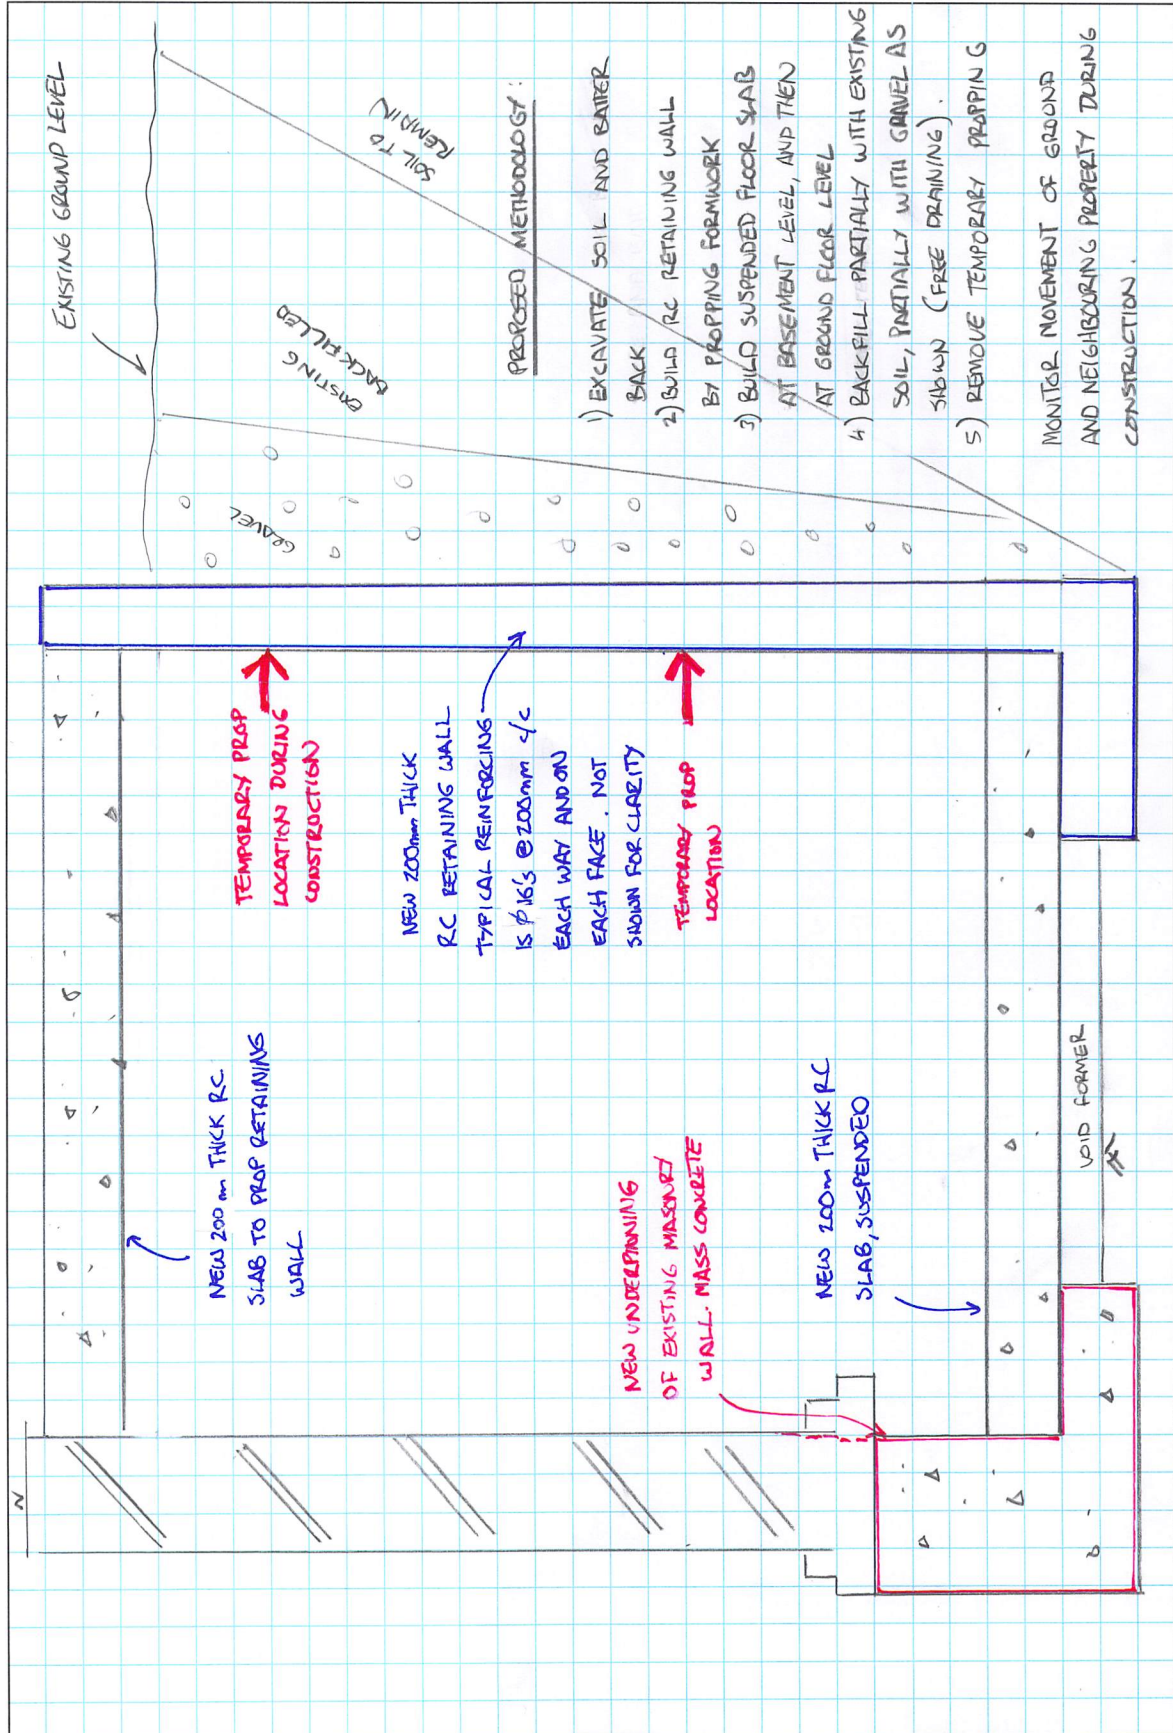 EXISTING GROUND LEVEL
SOIL TO
REMAIN
EXISTING
BACKFILLED
GRAVEL
PROPOSED METHODOLOGY:
1) EXCAVATE SOIL AND BATTER
BACK
2) BUILD RC RETAINING WALL
BY PROPPING FORMWORK
3) BUILD SUSPENDED FLOOR SLAB
AT BASEMENT LEVEL, AND THEN
AT GROUND FLOOR LEVEL
4) BACKFILL PARTIALLY WITH EXISTING
SOIL, PARTIALLY WITH GRAVEL AS
SHOWN (FREE DRAINING).
5) REMOVE TEMPORARY PROPPING
MONITOR MOVEMENT OF GROUND
AND NEIGHBOURING PROPERTY DURING
CONSTRUCTION.
TEMPORARY PROP
LOCATION DURING
CONSTRUCTION
NEW 200mm THICK
RC RETAINING WALL
TYPICAL REINFORCING
IS φ16's @200mm c/c
EACH WAY AND ON
EACH FACE. NOT
SHOWN FOR CLARITY
TEMPORARY PROP
LOCATION
NEW 200mm THICK RC
SLAB TO PROP RETAINING
WALL
NEW UNDERPINNING
OF EXISTING MASONRY
WALL. MASS CONCRETE
NEW 200mm THICK RC
SLAB, SUSPENDED
VOID FORMER